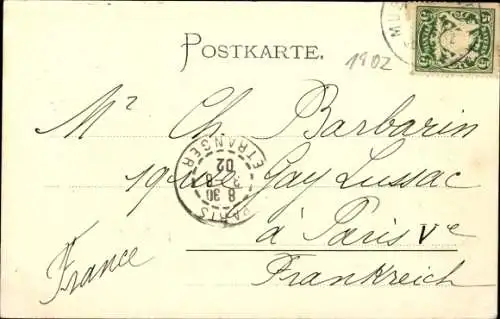 POSTKARTE.
1902
5 5
Mr Ch. Barbarin
19 rue Gay Lussac
à Paris Ve
France
Frankreich
PARIS ETRANGER
8 30
02